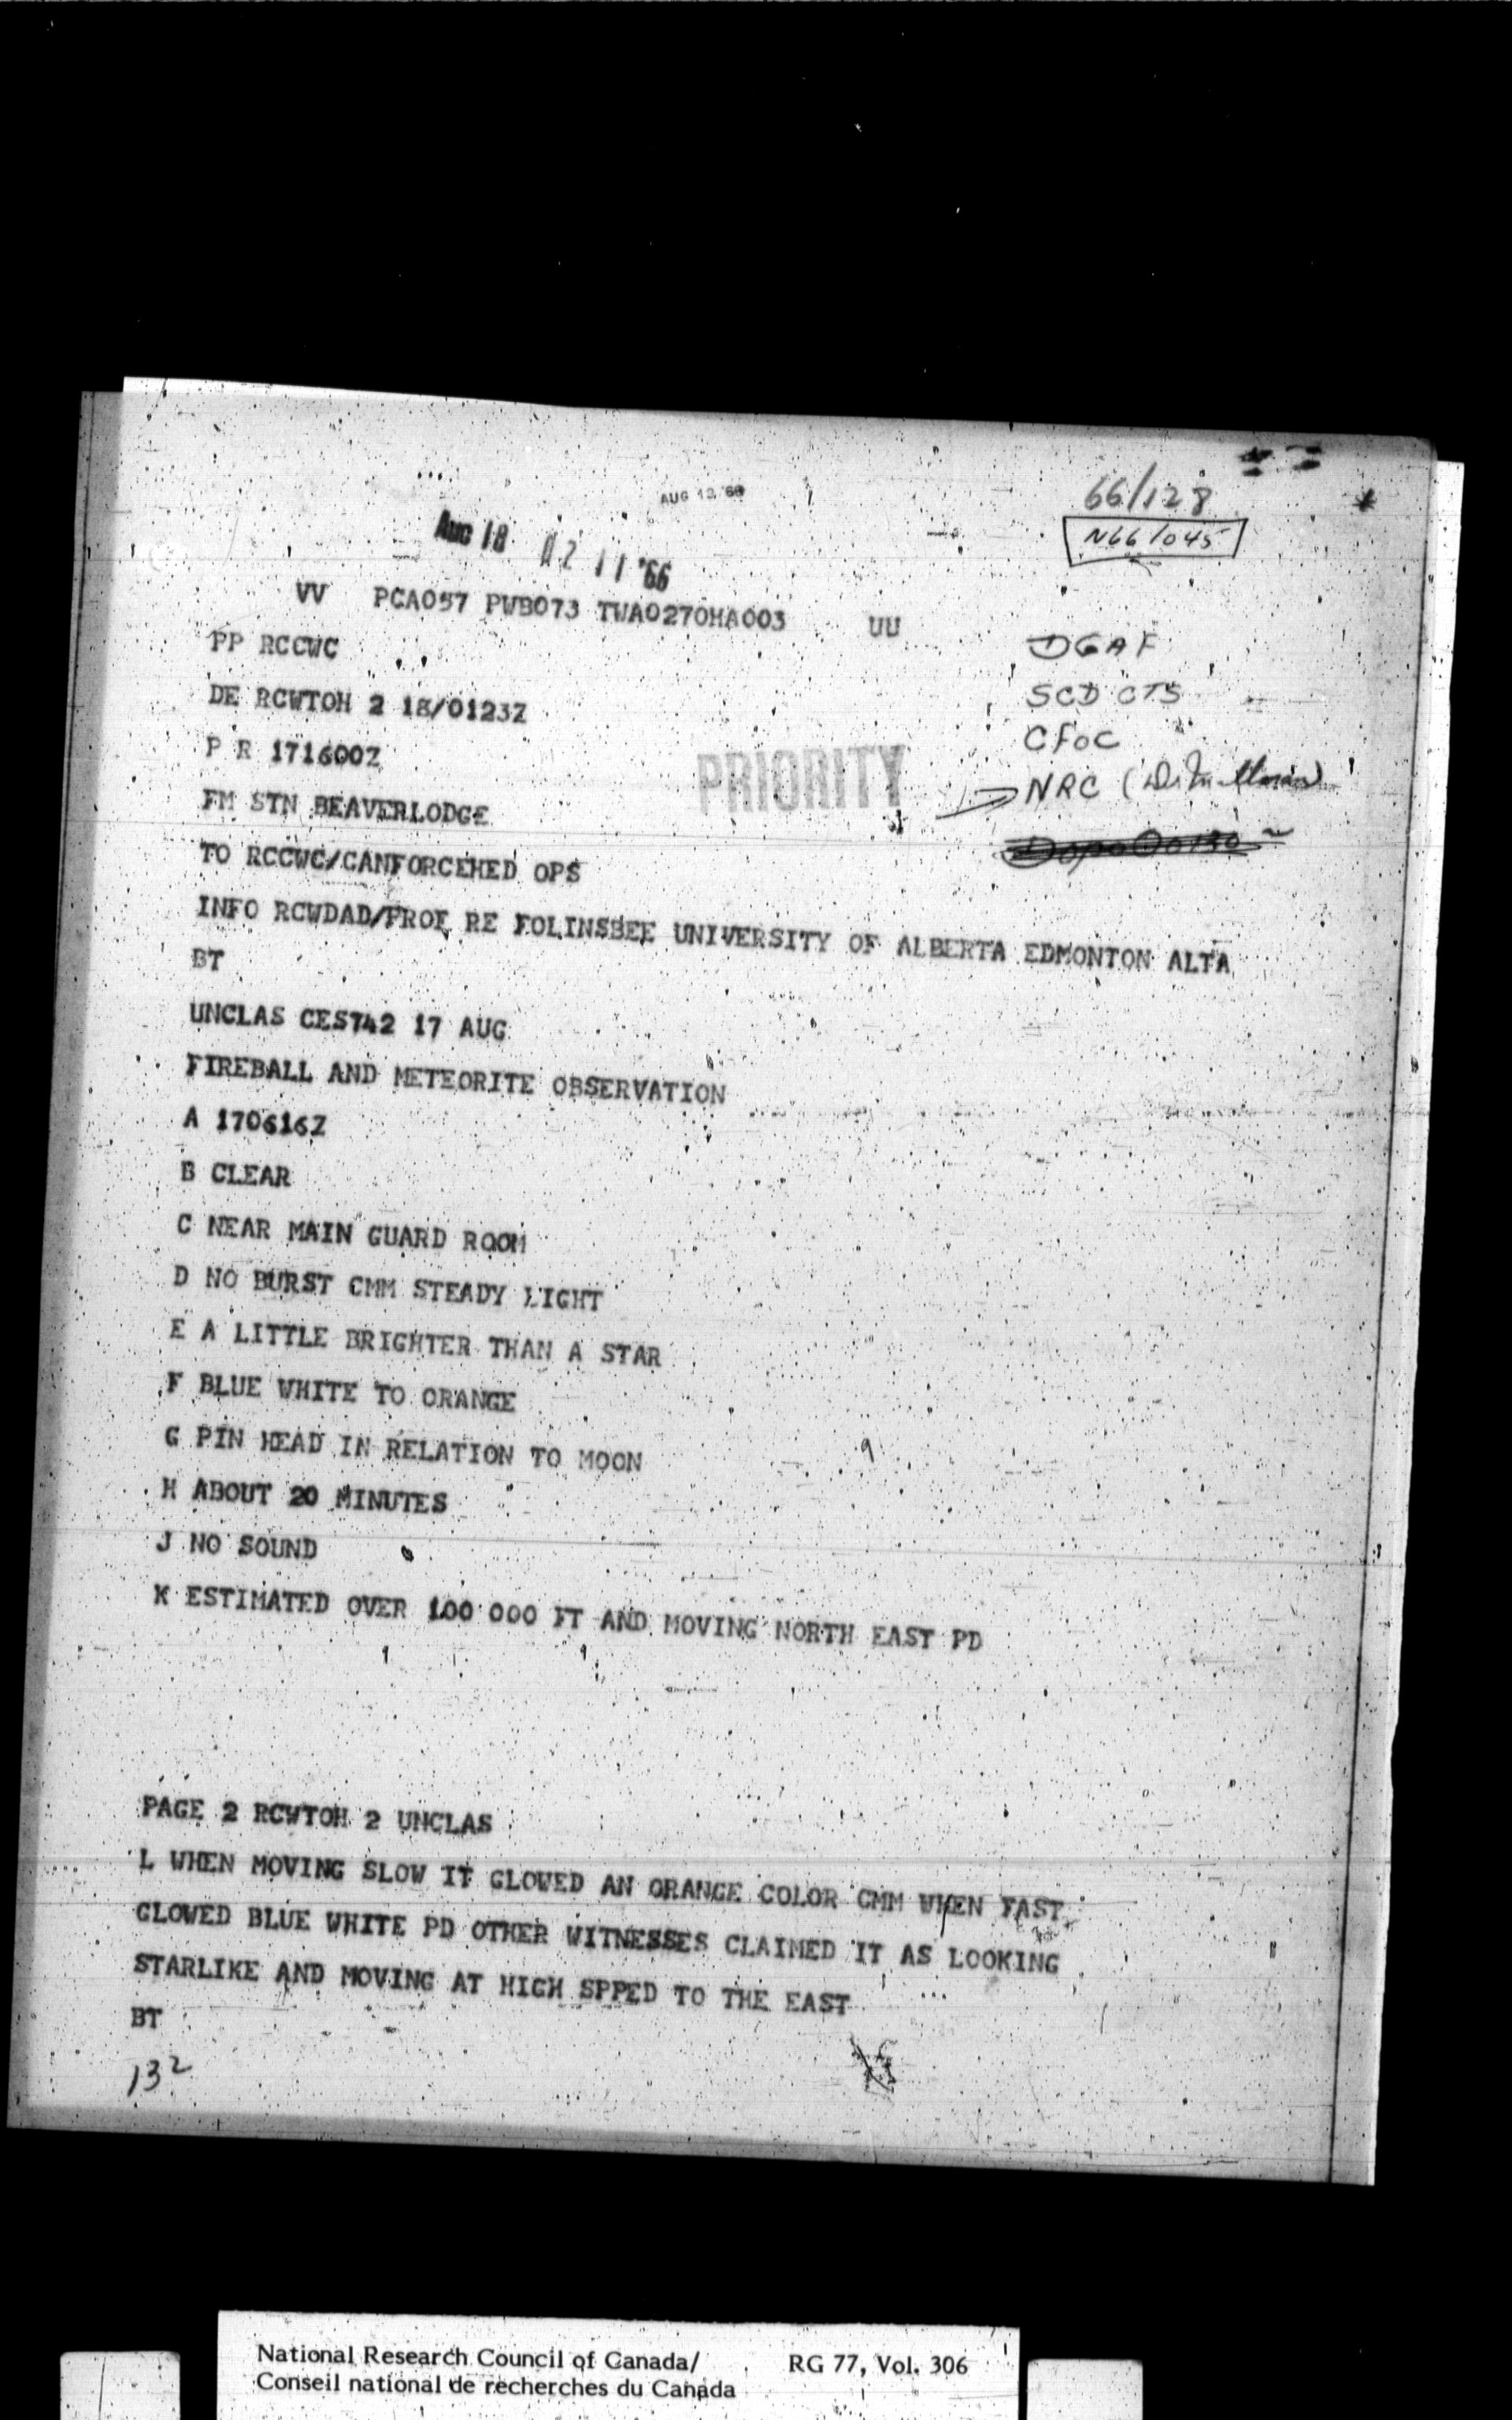 66/128
N66/045
AUG 18 02 11 '66
VV PCA057 PWB073 TWA027OHA003 UU
PP RCCWC
DE RCWTOH 2 18/0123Z
P R 171600Z
PRIORITY
FM STN BEAVERLODGE
TO RCCWC/CANFORCEHED OPS
DGAF
SCD CTS
CFOC
NRC
INFO RCWDAD/PROF RE FOLINSBEE UNIVERSITY OF ALBERTA EDMONTON ALTA
BT
UNCLAS CES742 17 AUG
FIREBALL AND METEORITE OBSERVATION
A 170616Z
B CLEAR
C NEAR MAIN GUARD ROOM
D NO BURST CMM STEADY LIGHT
E A LITTLE BRIGHTER THAN A STAR
F BLUE WHITE TO ORANGE
G PIN HEAD IN RELATION TO MOON
H ABOUT 20 MINUTES
J NO SOUND
K ESTIMATED OVER 100 000 FT AND MOVING NORTH EAST PD
PAGE 2 RCWTOH 2 UNCLAS
L WHEN MOVING SLOW IT GLOWED AN ORANGE COLOR CMM WHEN FAST
GLOWED BLUE WHITE PD OTHER WITNESSES CLAIMED IT AS LOOKING
STARLIKE AND MOVING AT HIGH SPPED TO THE EAST
BT
132
National Research Council of Canada/ RG 77, Vol. 306
Conseil national de recherches du Canada